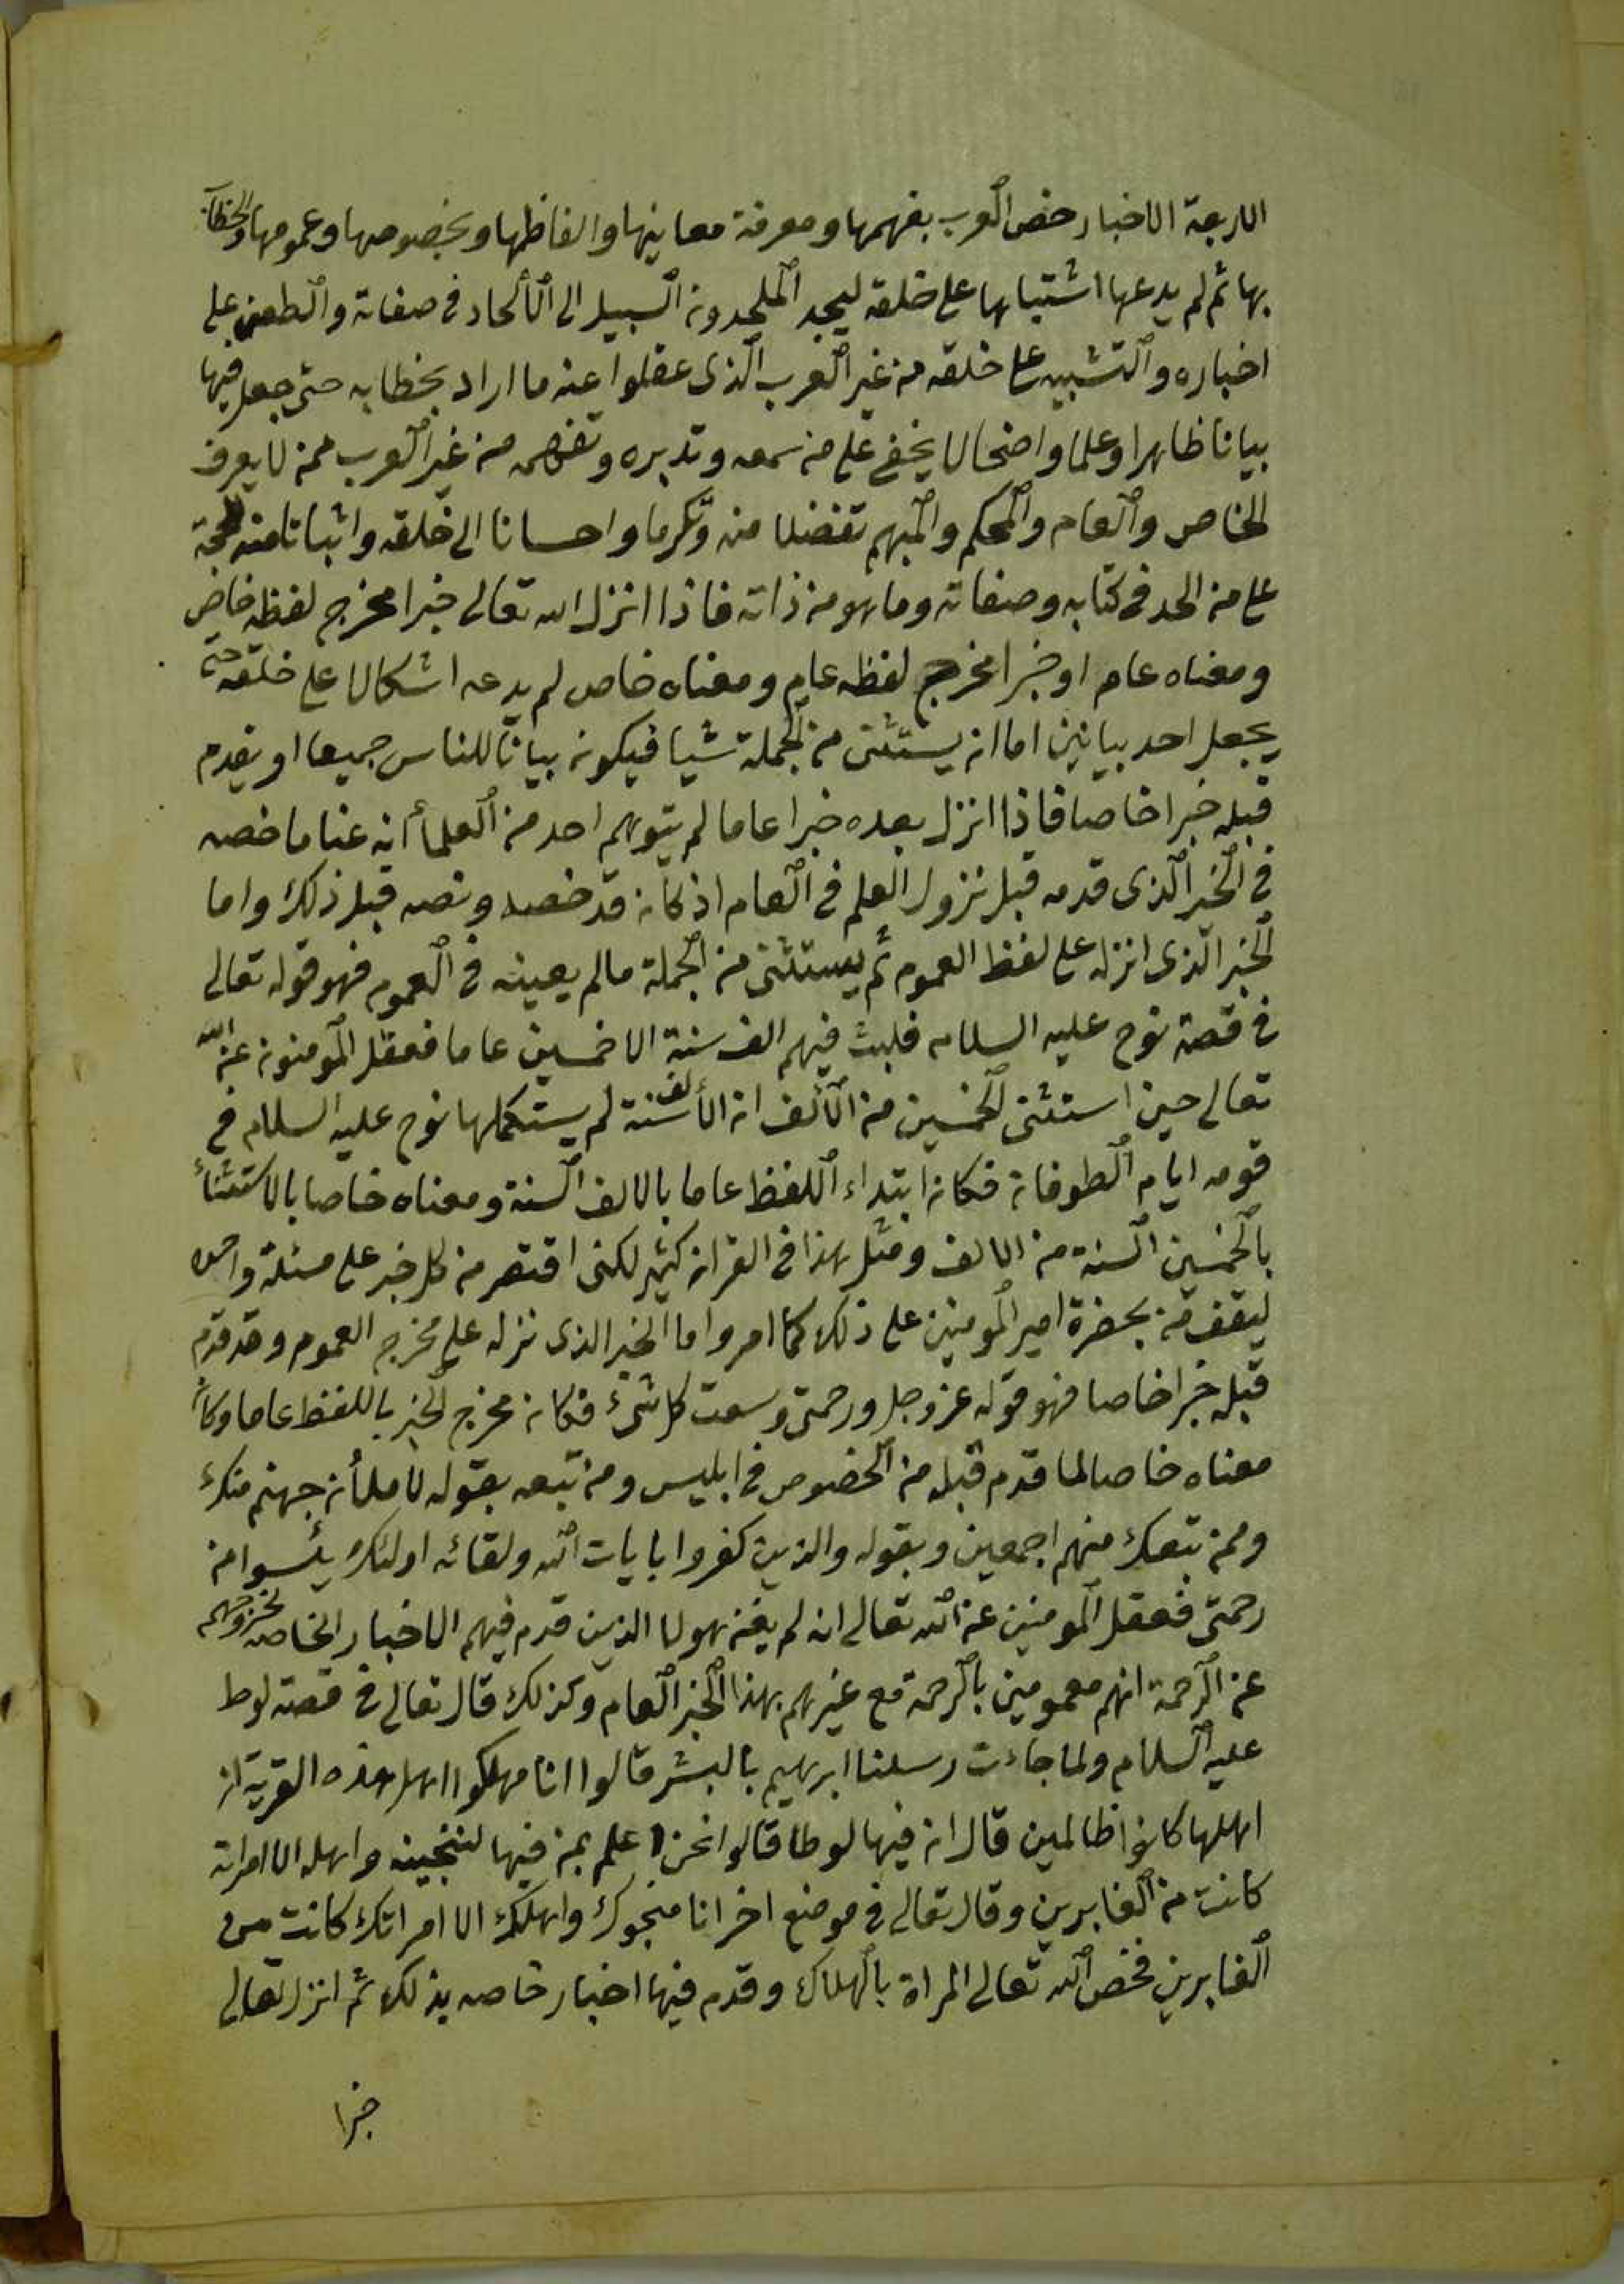 الاربعة الاخبار خص العرب بفهمها ومعرفة معانيها والفاظها وبخصوصها وعمومها والخطاب
بها ثم لم يدعها اشتباها على خلقه ليجد الملحدون السبيل الى الألحاد في صفاته والطعن على
اخباره والتشبيه على خلقه من غير العرب الذى عقلوا عنه ما اراد بخطابه حتى جعل فيها
بيانا ظاهرا وعلما واضحا لا يخفى على من سمعه وتدبره وتفهمه من غير العرب ممن لا يعرف
الخاص والعام والمحكم والمبهم تفضلا منه وتكرما واحسانا الى خلقه واثباتا منه للحجة
على من الحد في كتابه وصفاته وما هو من ذاته فاذا انزل الله تعالى خبرا مخرج لفظه خاص
ومعناه عام او خبرا مخرج لفظه عام ومعناه خاص لم يدعه اشكالا على خلقه حتى
يجعل احد بيانين اما ان يستثنى من الجملة شيا فيكون بيانا للناس جميعا او يقدم
قبله خبرا خاصا فاذا انزل بعده خبرا عاما لم يتوهم احد من العلمأ انه عنا ما خصه
في الخبر الذى قدمه قبل نزول العلم في العام اذ كان قد خصه ونصه قبل ذلك واما
الخبر الذى انزله على لفظ العموم ثم يستثنى من الجملة مالم يعينه في العموم فهو قوله تعالى
في قصة نوح عليه السلام فلبث فيهم الف سنة الا خمسين عاما فعقل المومنون عن الله
تعالى حين استثنى الخمسين من الألف ان الألف سنة لم يستكملها نوح عليه السلام في
قومه ايام الطوفان فكان ابتداء اللفظ عاما بالالف السنة ومعناه خاصا بالاستثنأ
بالخمسين السنة من الالف ومثل هذا في القران كثير لكنى اقتصر من كل خبر على مسئلة واحده
ليقف من بحضرة امير المومنين على ذلك كما امر واما الخبر الذى نزله على مخرج العموم وقد قدم
قبله خبرا خاصا فهو قوله عز وجل ورحمتى وسعت كل شىء فكان مخرج الخبر باللفظ عاما وكان
معناه خاصا لما قدم قبله من الخصوص في ابليس ومن تبعه بقوله لاملأن جهنم منك
وممن تبعك منهم اجمعين وبقوله والذين كفروا بايات الله ولقائه اولئك يئسوا من
رحمتى فعقل المومنين عن الله تعالى انه لم يعن هولا الذين قدم فيهم الاخبار الخاصه بخروجهم
عن الرحمة انهم معمومين بالرحمة مع غيرهم بهذا الخبر العام وكذلك قال تعالى في قصة لوط
عليه السلام ولما جاءت رسلنا ابرهيم بالبشر قالوا انا مهلكوا اهل هذه القرية ان
اهلها كانوا ظالمين قال ان فيها لوطا قالوا نحن اعلم بمن فيها لننجينه واهله الا امراته
كانت من الغابرين وقال تعالى في موضع اخر انا منجوك واهلك الا امراتك كانت من
الغابرين فخص الله تعالى المراة بالهلاك وقدم فيها اخبار خاصه بذلك ثم انزل تعالى
خبرا